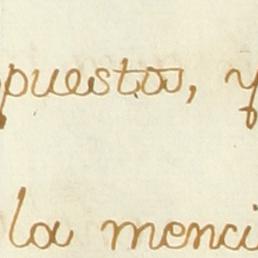 puestos, y
la menci